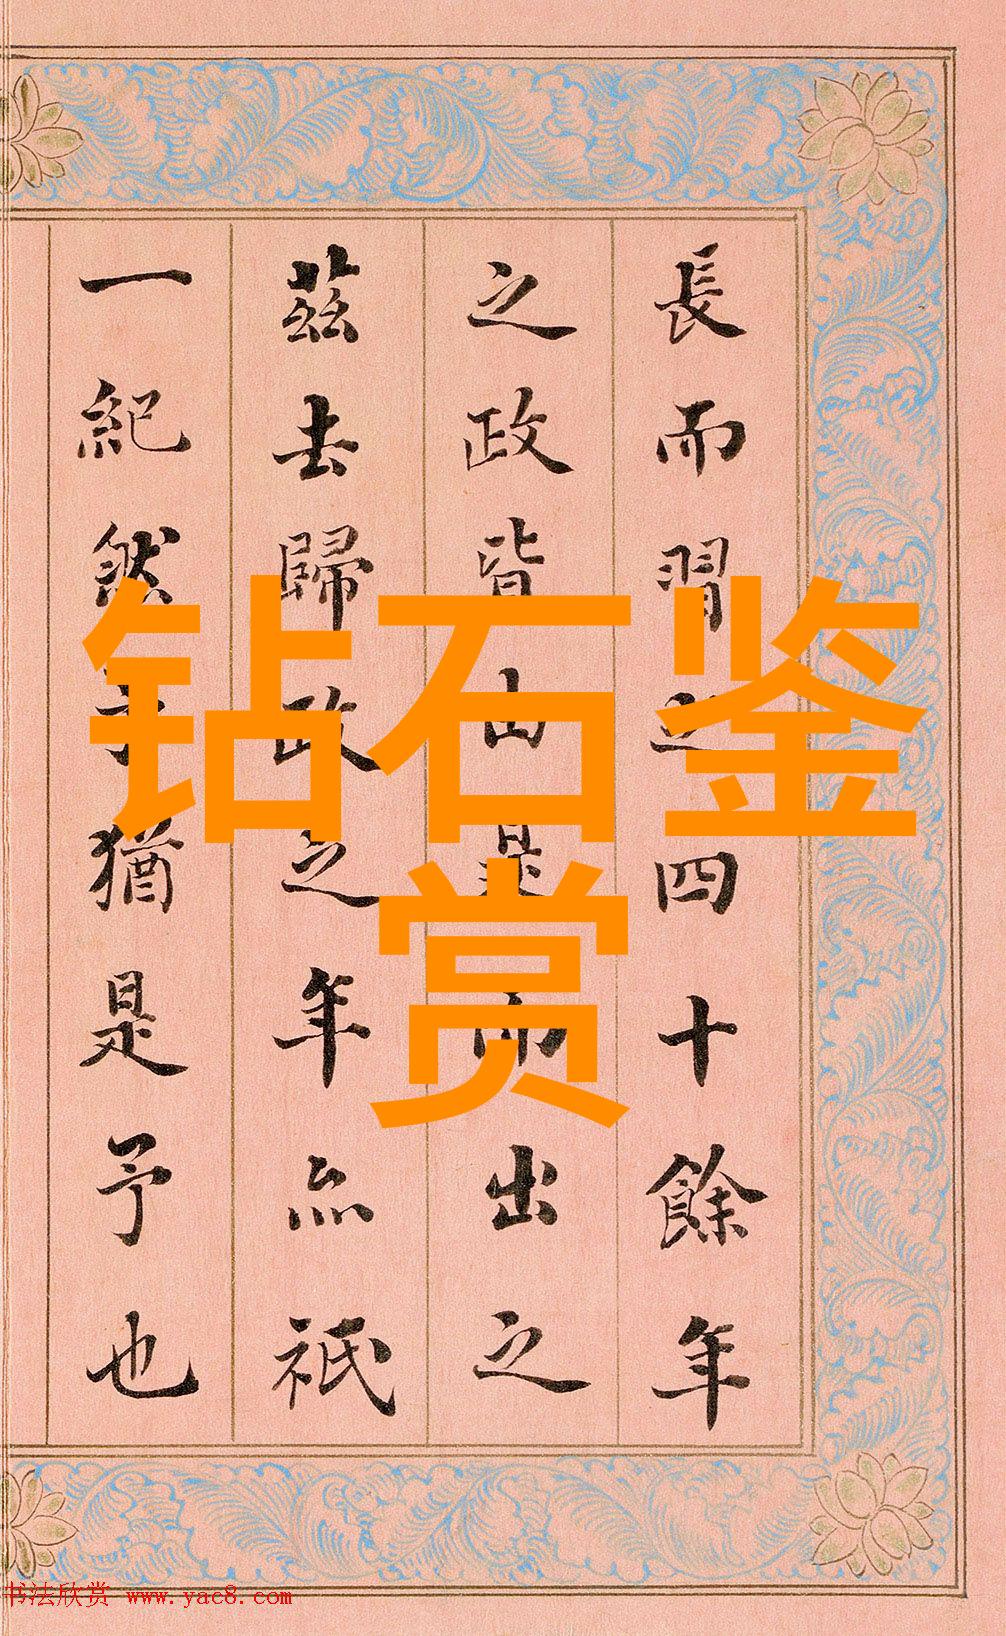 長而習之四十餘年
之政皆由是而出之
茲去歸政之年亦祇
一紀然予猶是予也
钻石鉴
赏
书法欣赏 www.yac8.com